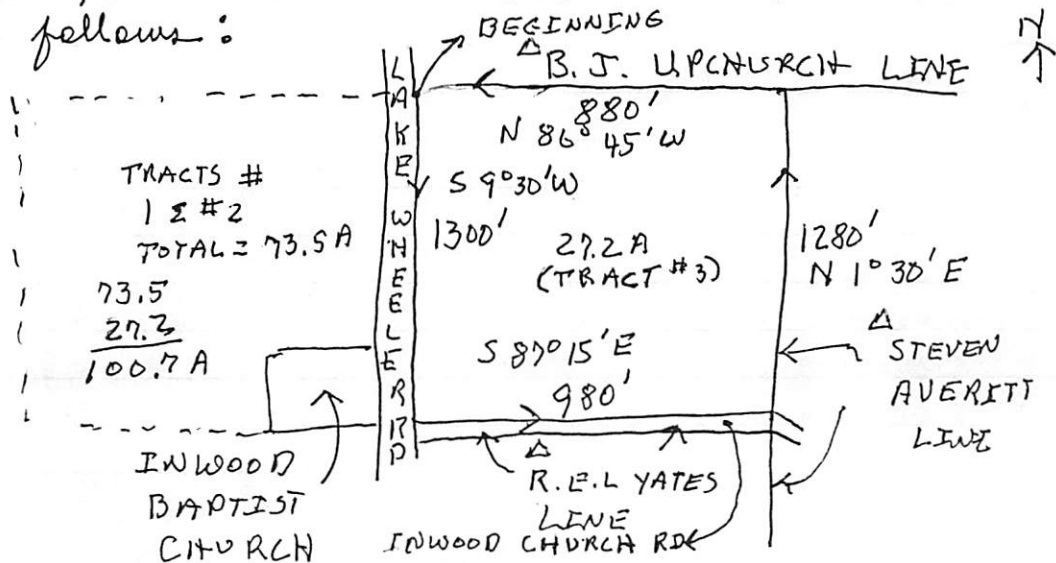 follows:
BEGINNING
N
B. J. UPCHURCH LINE
LAKE WHEELER RD
880'
N 86° 45' W
S 9°30' W
1300'
TRACTS #
1 & #2
TOTAL = 73.5 A
73.5
27.2
100.7 A
27.2 A
(TRACT #3)
1280'
N 1° 30' E
S 87° 15' E
980'
STEVEN
AVERITT
LINE
INWOOD
BAPTIST
CHURCH
R.E.L YATES
LINE
INWOOD CHURCH RD